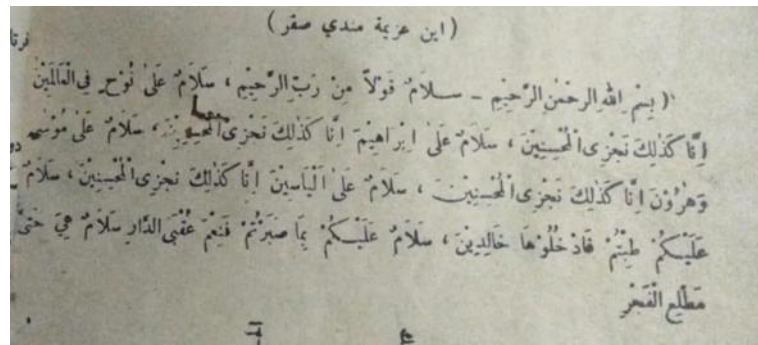 (اين عزيمة مندي صقر)
بِسْمِ اللهِ الرحْمٰنِ الرَّحِيْمِ - سَلاَمٌ قَوْلاً مِنْ رَبِّ الرَّحِيْمِ ، سَلاَمٌ عَلىٰ نُوْحٍ فِي الْعَالَمَيْنَ
اِنَّا كَذٰلِكَ نَجْزِى الْمُحْسِنِيْنَ ، سَلاَمٌ عَلىٰ اِبْرَاهِيْمَ اِنَّا كَذٰلِكَ نَجْزِى الْمُحْسِنِيْنَ ، سَلاَمٌ عَلىٰ مُوْسٰى
وَهٰرُوْنَ اِنَّا كَذٰلِكَ نَجْزِى الْمُحْسِنِيْنَ ، سَلاَمٌ عَلىٰ اَلْيَاسِيْنَ اِنَّا كَذٰلِكَ نَجْزِى الْمُحْسِنِيْنَ ، سَلاَمٌ
عَلَيْكُمْ طِبْتُمْ فَادْخُلُوْهَا خَالِدِيْنَ ، سَلاَمٌ عَلَيْكُمْ بِمَا صَبَرْتُمْ فَنِعْمَ عُقْبَى الدَّارِ سَلاَمٌ هِيَ حَتّٰى
مَطْلَعِ الْفَجْرِ